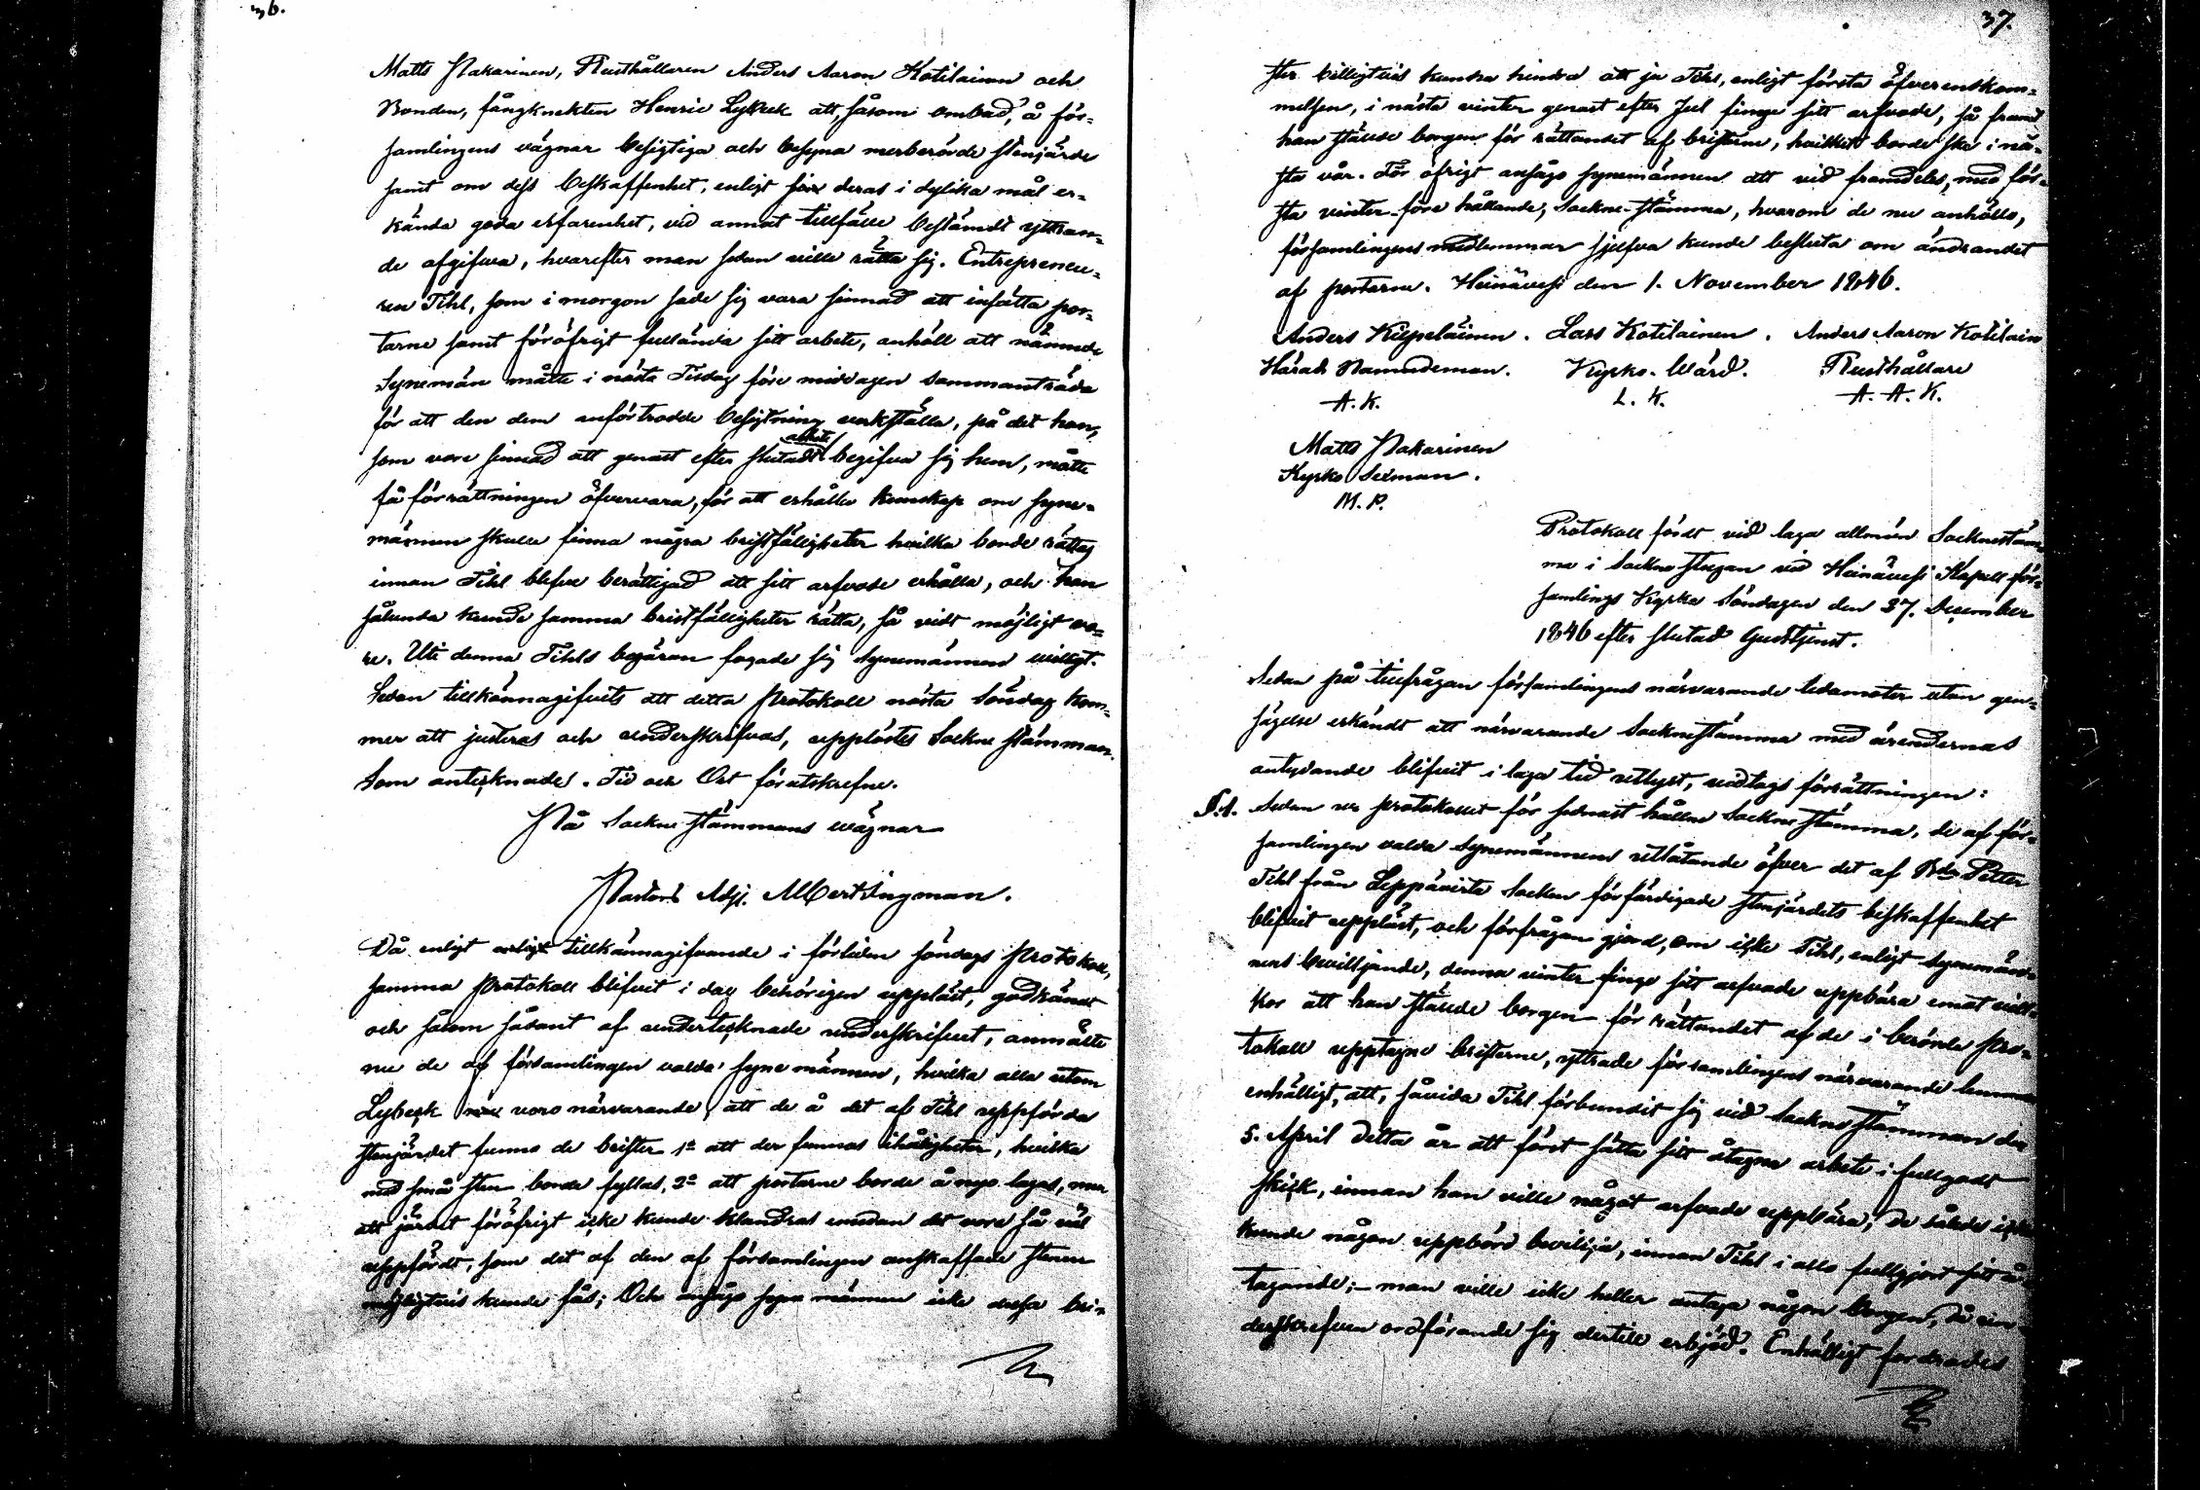 36.
Matts Pakarinen, Rusthållaren Anders Aaron Kotilainen och
Bonden, fångknekten Henric Lybeck att, såsom ombud, å för-
samlingens vägnar besigtiga och besyna merberörde stenjärde
samt om dess beskaffenhet, enligt deras i dylika mål er-
kända goda erfarenhet, vid annat tillfälle bestämdt yttran-
de afgifva, hvarefter man sedan ville rätta sig. Entrepreneu-
ren Tihl, som i morgon sade sig vara sinnad att insätta por-
tarne samt föröfrigt fullända sitt arbete, anhöll att nämnde
Synemän måtte i nästa Tisdag före middagen sammanträda
för att den dem anförtrodde besigtning verkställa, på det han,
som vore sinnad att genast efter slutadt arbete begifva sig hem, måtte
få förrättningen öfvervara, för att erhålla kunskap om syne-
männen skulle finna några bristfälligheter hvilka borde rättas
innan Tihl blefve berättigad att sitt arfvode erhålla, och han
sålunda kunde samma bristfälligheter rätta, så vidt möjligt vo-
re. Uti denna Tihls begäran fogade sig Synemännen villigt.
Sedan tillkännagifvits att detta Protokoll nästa Söndag kom-
mer att justeras och underskrifvas, upplöstes Sockne stämman.
Som antecknades. Tid och Ort förutskrefne.
På Sockne stämmans vägnar
Pastors Adj. Albert Ingman.
Då enligt tillkännagifvande i förliden söndags Protokoll,
samma Protokoll blifvit i dag behörigen uppläst, godkändt
och såsom sådant af undertecknade underskrifvet, anmälte
nu de af församlingen valda syne männen, hvilka alla utom
Lybeck voro närvarande, att de å det af Tihl uppförda
stenjärdet funno de brister 1o att der funnos ihåligheter, hvilka
med små sten borde fyllas, 2o att portarne borde å nyo lagas, men
att järdet föröfrigt icke kunde klandras emedan det vore så väl
uppfördt, som det af den af församlingen anskaffade stenen
möjligtvis kunde fås; Och ansågo syne männen icke dessa bri-
37.
ster billigtvis kunna hindra att ju Tihl, enligt första öfverenskom-
melsen, i nästa vinter genast efter Jul finge sitt arfvode, så framt
han ställde borgen för rättandet af bristerne, hvilket borde ske i nä-
sta vår. För öfrigt ansågo synemännen att vid framdeles, med för-
sta vinter-före hållande, Sockne-stämma, hvarom de nu anhöllo,
församlingens medlemmar sjelfva kunde besluta om ändrandet
af portarne. Heinävesi den 1. November 1846.
Anders Kilpeläinen. Lars Kotilainen. Anders Aaron Kotilain
Härads Nämndeman. Kyrko-Wärd. Rusthållare
A. K. L. K. A. A. K.
Matts Pakarinen
Kyrko Sexman.
M. P.
Protokoll fördt vid laga allmän Sockneständ
ma i Sockne stugan vid Heinävesi Kapell för-
samlings Kyrka Söndagen den 27. December
1846 efter slutad Gudstjenst.
Sedan på tillfrågan församlingens närvarande ledamöter utan gen-
sägelse erkändt att närvarande Socknestämma med ärendernas
antydande blifvit i laga tid utlyst, vidtogs förrättningen:
§.1. Sedan ur protokollet för sednast hållne Sockne stämma, de af för-
samlingen valda Synemännens utlåtande öfver det af Bdn Petter
Tihl från Leppävirta Socken förfärdigade stenjärdets beskaffenhet
blifvit uppläst, och förfrågan gjord, om icke Tihl, enligt synemän-
nens bevilljande, denna vinter finge sitt arfvode uppbära emot vill-
kor att han ställde borgen för rättandet af de i berörde Pro-
tokoll upptagne bristerne, yttrade församlingens närvarande
enhälligt, att, såvida Tihl förbundit sig vid Sockne stämman den
5. April detta år att först sätta sitt åtagne arbete i fullgodt
skick, innan han ville något arfvode uppbära, de således icke
kunde någon uppbörd bevilja, innan Tihl i allo fullgjort sitt å-
tagande; – man ville icke heller antaga någon borgen, då un-
derskrefven ordförande sig dertill erbjöd. Enhälligt fordrades